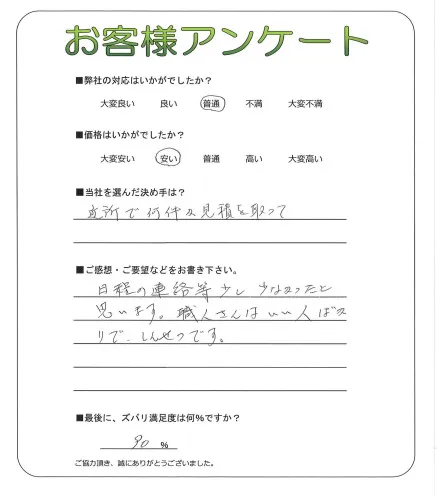 お客様アンケート
■弊社の対応はいかがでしたか？
大変良い　良い　普通　不満　大変不満
■価格はいかがでしたか？
大変安い　安い　普通　高い　大変高い
■当社を選んだ決め手は？
近所で何件か見積を取って
■ご感想・ご要望などをお書き下さい。
日程の連絡等少し少なかったと
思います。職人さんはいい人ばか
りで、しんせつです。
■最後に、ズバリ満足度は何％ですか？
90 %
ご協力頂き、誠にありがとうございました。